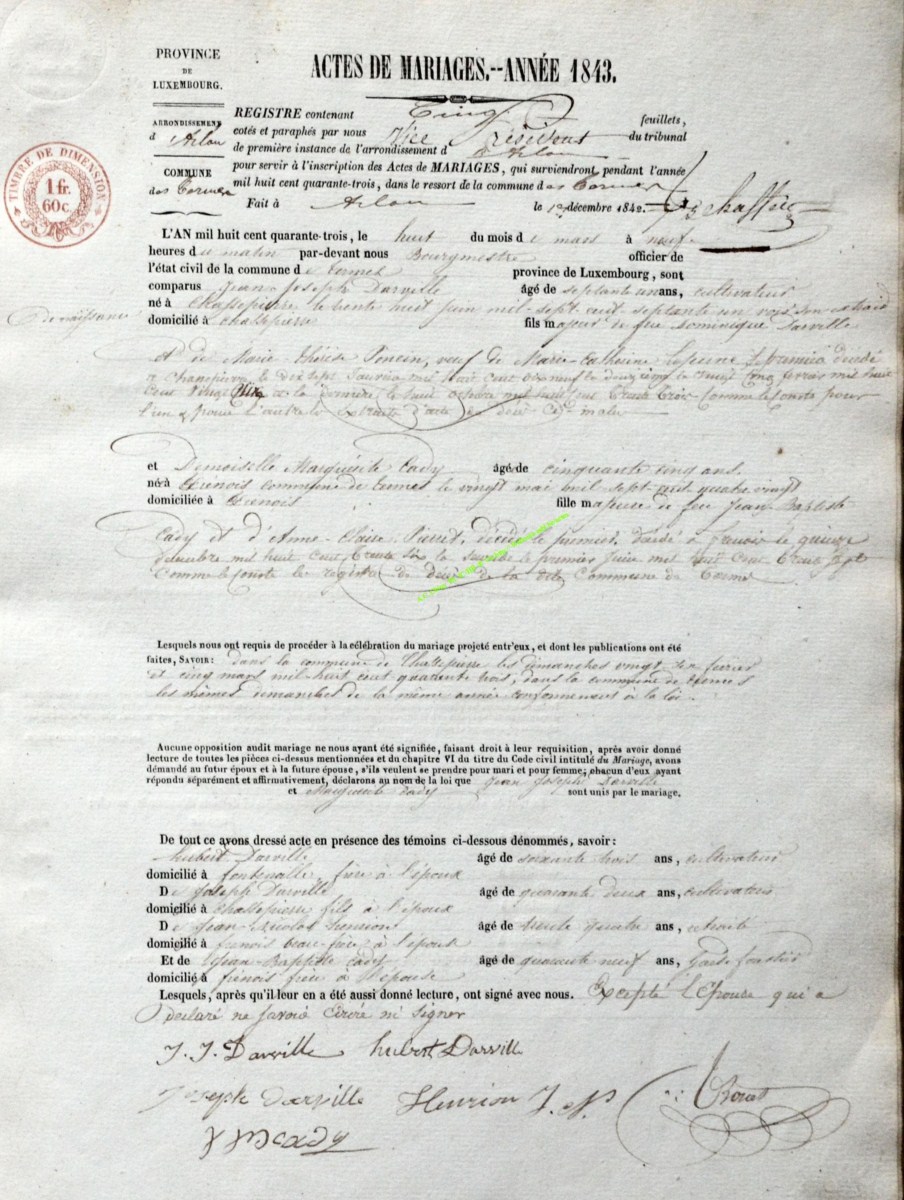 PROVINCE
DE
LUXEMBOURG.
ACTES DE MARIAGES.--ANNÉE 1843.
ARRONDISSEMENT
d'Arlon
COMMUNE
des Termes
TIMBRE DE DIMENSION
1 fr.
60 c.
REGISTRE contenant Cinq feuillets,
cotés et paraphés par nous Vice Président du tribunal
de première instance de l'arrondissement d'Arlon
pour servir à l'inscription des Actes de MARIAGES, qui surviendront, pendant l'année
mil huit cent quarante-trois, dans le ressort de la commune des Termes
Fait à Arlon le décembre 1842.
L'AN mil huit cent quarante-trois, le huit du mois de mars à neuf
heures du matin par-devant nous Bourgmestre officier de
l'état civil de la commune de Termes province de Luxembourg, sont
comparus Jean Joseph Darville âgé de septante un ans, cultivateur
né à Chassepierre le vente huit juin mil sept cent septante un vois son extrait
de naissance
domicilié à Chassepierre fils majeur de feu Dominique Darville
et de Marie Thérèse Poncin, veuf de Marie-Catherine
mil huit cent dix neuf la mil huit
cent vingt et la dernière le huit octobre mil huit cent trente trois comme le conste pour
l'un & pour l'autre
et Demoiselle Marguérite Cady âgé de cinquante cinq ans.
né à frenois commune de termes le vingt mai mil sept cent quatre vingt
domiciliée à frenois fille majeure de feu Jean Baptiste
Cady et d'Anne Claire Pierret, décédé le premier, à frenois le quinze
décembre mil huit cent trente six la seconde le premier juin mil huit cent trente sept
comme le conste le registre de décès de la dite Commune de Termes
Lesquels nous ont requis de procéder à la célébration du mariage projeté entr'eux, et dont les publications ont été
faites, SAVOIR: dans la commune de Chassepierre les dimanches vingt six fevrier
et cinq mars mil-huit cent quarante trois, dans la commune de termes
les mêmes dimanches de la même année conformément à la loi.
Aucune opposition audit mariage ne nous ayant été signifiée, faisant droit à leur requisition, après avoir donné
lecture de toutes les pièces ci-dessus mentionnées et du chapitre VI du titre du Code civil intitulé du Mariage, avons
démandé au futur époux et à la future épouse, s'ils veulent se prendre pour mari et pour femme; chacun d'eux ayant
répondu séparément et affirmativement, déclarons au nom de la loi que Jean Joseph Darville
et Marguerite Cady sont unis par le mariage.
De tout ce avons dressé acte en présence des témoins ci-dessous dénommés, savoir:
hubert Darville âgé de soixante trois ans, cultivateur
domicilié à fontenoille, frère à l'époux
De Joseph Darville âgé de quarante deux ans, cultivateur
domicilié à Chassepierre fils à l'époux
De Jean-Nicolas henrion âgé de ans, retraité
domicilié à frenois beau-frère à l'épouse
Et de Jean-Baptiste Cady âgé de quarante neuf ans, Garde forestier
domicilié à frenois frère à l'épouse
Lesquels, après qu'il leur en a été aussi donné lecture, ont signé avec nous. Excepté l'Epouse qui a
declaré ne savoir écrire ni signer
J. J. Darville hubert Darville
Joseph darville Henrion J. N.